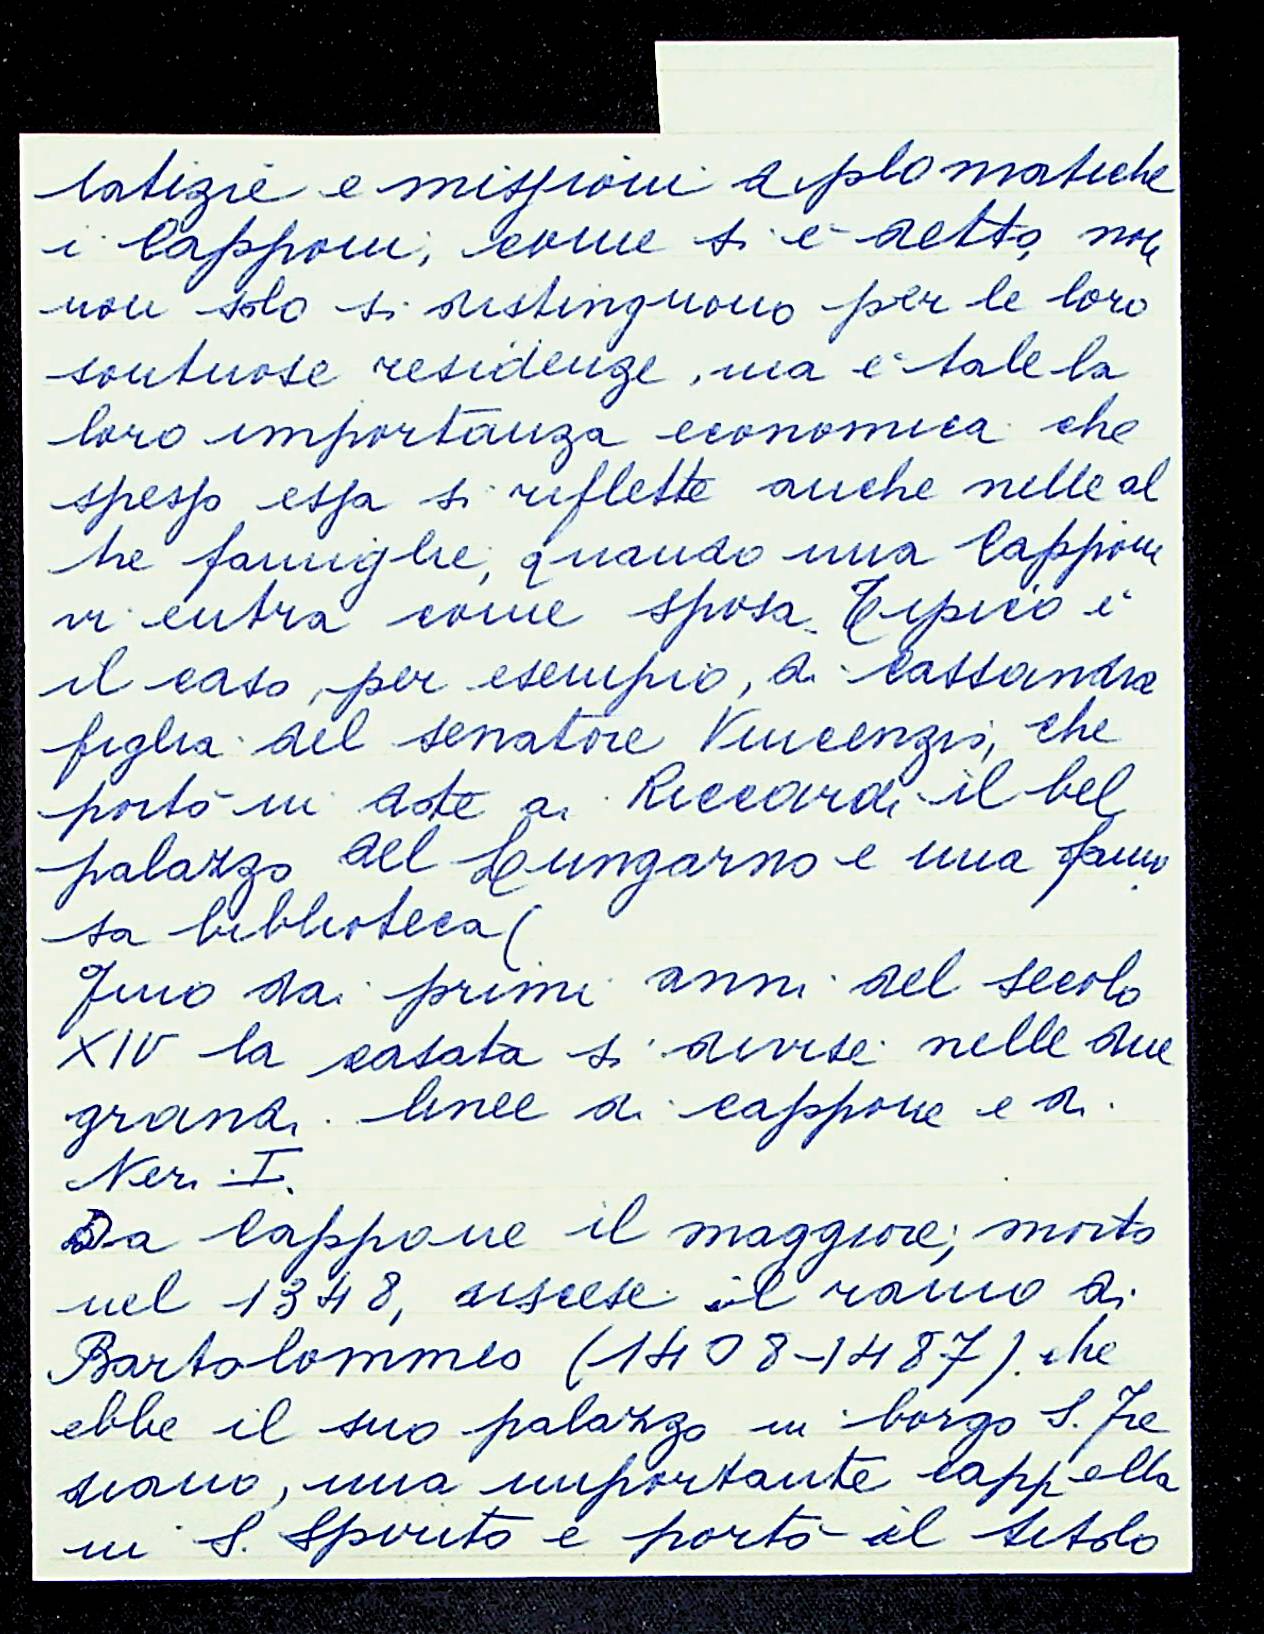 latizie e missioni diplomatiche
i Capponi, come si è detto, non
non solo si distinguono per le loro
sontuose residenze, ma è tale la
loro importanza economica che
spesso essa si riflette anche nelle al
tre famiglie, quando una Capponi
vi entra come sposa. Tipico è
il caso, per esempio, di Cassandra
figlia del senatore Vincenzio, che
portò in dote ai Riccardi il bel
palazzo del Lungarno e una famo
sa biblioteca (
Fino dai primi anni del secolo
XIV la casata si divise nelle due
grandi linee di Cappone e di
Neri I.
Da Cappone il maggiore, morto
nel 1348, discese il ramo di
Bartolommeo (1408-1487). che
ebbe il suo palazzo in borgo S. Fre
diano, una importante cappella
in S. Spirito e portò il titolo